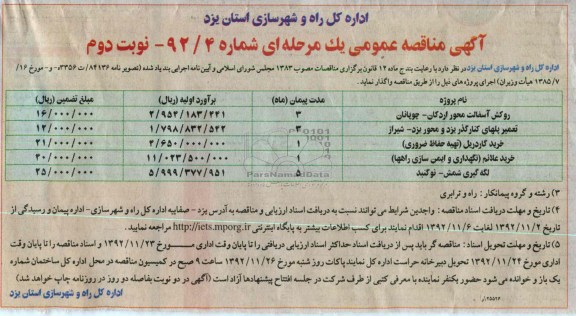 اداره کل راه و شهرسازی استان یزد
آگهی مناقصه عمومی یك مرحله ای شماره ۹۲/۴ - نوبت دوم
اداره کل راه و شهرسازی استان یزد در نظر دارد با رعایت بند ج ماده ۱۲ قانون برگزاری مناقصات مصوب ۱۳۸۳ مجلس شورای اسلامی و آیین نامه اجرایی بند یاد شده (تصویب نامه ۸۴۹۳۶/ت ۳۳۵۶۰ه- مورخ ۱۶/
۷/ ۱۳۸۵ هیأت وزیران) اجرای پروژه های ذیل را از طریق مناقصه واگذار نماید.
نام پروژه مدت پیمان (ماه) برآورد اولیه (ریال) مبلغ تضمین (ریال)
روکش آسفالت محور اردکان- چوپانان ۳ ۲/۹۵۲/۱۸۳/۲۴۱ ۱۶/۰۰۰/۰۰۰
تعمیر پلهای کنارگذر یزد و محور یزد- شیراز ۳ ۱/۷۹۸/۸۳۲/۵۴۲ ۱۲/۰۰۰/۰۰۰
خرید گاردریل (تهیه حفاظ ضروری) ۱ ۲/۶۵۰/۰۰۰/۰۰۰ ۱۴/۰۰۰/۰۰۰
خرید علائم (نگهداری و ایمن سازی راهها) ۱ ۱۱/۰۲۳/۵۰۰/۰۰۰ ۳۰/۰۰۰/۰۰۰
لکه گیری شمش- نوگنبد ۵ ۵/۹۹۹/۳۷۷/۹۵۱ ۲۵/۰۰۰/۰۰۰
ParsNamadData
۳) رشته و گروه پیمانکار: راه و ترابری
۴) تاریخ و مهلت دریافت اسناد مناقصه: واجدین شرایط می توانند نسبت به دریافت اسناد ارزیابی و مناقصه به آدرس یزد - صفاییه اداره کل راه و شهرسازی- اداره پیمان و رسیدگی از
تاریخ ۱۳۹۲/۱۱/۲ لغایت ۱۳۹۲/۱۱/۶ اقدام نمایند برای کسب اطلاعات بیشتر به پایگاه اینترنتی http://iets.mporg.ir مراجعه نمایید.
۵) تاریخ و مهلت تحویل اسناد: مناقصه گر باید پس از دریافت اسناد حداکثر اسناد ارزیابی دریافتی را تا پایان وقت اداری مورخ ۱۳۹۲/۱۱/۲۳ و اسناد مناقصه را تا پایان وقت
اداری مورخ ۱۳۹۲/۱۱/۲۴ تحویل دبیرخانه حراست اداره کل نمایند پاکات روز شنبه مورخ ۱۳۹۲/۱۱/۲۶ ساعت ۹ صبح در کمیسیون مناقصه در محل اداره کل ساختمان شماره
یک باز و خوانده می شود حضور یکنفر نماینده با معرفی کتبی از طرف شرکت در جلسه افتتاح پیشنهادها آزاد است (آگهی در دو نوبت بفاصله دو روز در روزنامه چاپ خواهد شد)
اداره کل راه و شهرسازی استان یزد